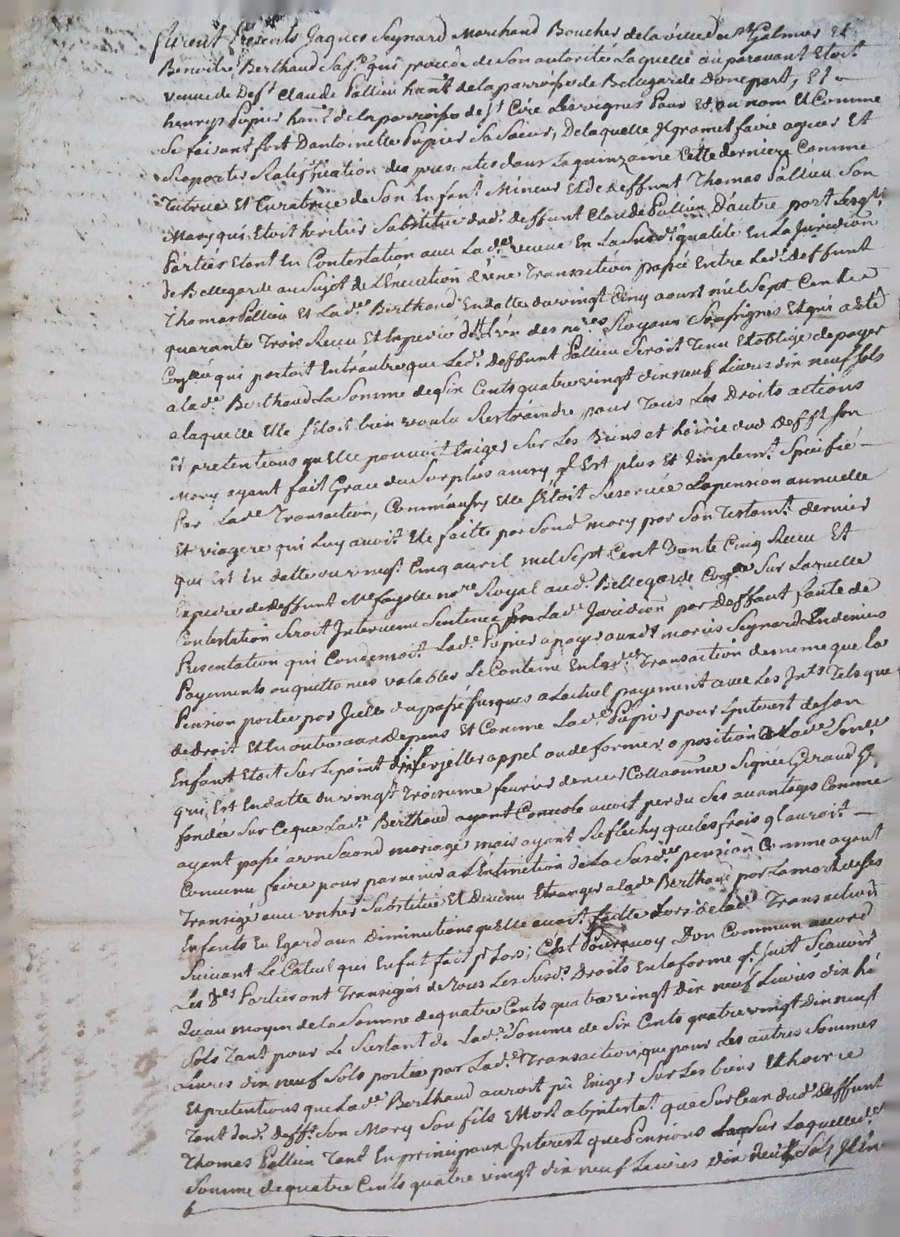 furent presents Jaques Seynard Marchand Boucher de la ville de St Galmier Et
Benoite Berthaud sa fe. qui procede de son autorité Laquelle auparavant Etoit
veuve de Deft Claude Pallieu hant. de la parroisse de Bellegarde Dune part, Et
henrys Pupier hant. de la parroisse de St Cire Les vignes Pour Et au nom Et Comme
Se faisant fort Dantoinette Pupier Sa Sœur, De laquelle Il promet faire agreer Et
raporter Ratiffication des presentes dans La quinzaine Cette derniere Comme
Tutrice Et Curatrice de Son Enfant Mineur Et de deffunt Thomas Pallieu Son
Mary qui Etoit heritier Substitué dud. deffunt Claude Pallieu D'autre part Lesqls.
Parties Etant En Contestation avec Lade. veuve En La Susde. qualité En La Juridiction
de Bellegarde au Sujet de L'Execution d'une Transaction passée Entre Led. deffunt
Thomas Pallieu Et Lade. Berthaud En datte du vingt Cinq aoust mil Sept Cent
quarante Trois Recu Et Expedié Lun des nores. Royaux Soussignes Et qui a Eté
qui portoit Entrautre que Led. deffunt Pallieu Seroit Tenu Et obligé de payer
a lade. Berthaud La Somme de Six Cents quatre vingt dix neuf Livres dix neuf sols
a laquelle Elle S'etoit bien voulu Restraindre pour Tous Les Droits actions
Et pretentions quElle pouvoit Exiger Sur Les Biens et hoirie dud Defft Son
Mary ayant fait Grace du Surplus ainsy ql Est plus Et amplemt. Specifié
Par Lade. Transaction, Comme aussy Elle S'Etoit Reservée La pension annuelle
Et viagere qui Luy avoit Eté faitte par Sond mary par Son Testamt. dernier
qui Est En datte du Cinq avril mil Sept Cent Trante Cinq Recu Et
Expedié de deffunt Me fayolle nore. Royal aud. Bellegarde Sur Laquelle
Contestation Seroit Intervenu Sentence En Lade. Juridiction par Deffaut faute de
Presentation qui Condemnoit Lade. Pupier a payer auxd. mariés Seynard En deniers
Payements ou quittances valables Le Contenu En lade. Transaction de meme que la
Pension portée par Icelle du passé Jusques a L'actuel payement avec Les Intts Tels que
de droit Et En outre aux Depens Et Comme Lade. Pupier pour Linterest de Son
Enfant Etoit Sur Le point d'Interjetter appel ou de former oposition a Lade Sence
qui Est En datte du vingt Troisieme fevrier dernier Collationnée Signée Giraud Gr.
fondée Sur Ce que Lade. Berthaud ayant Convolé avoit perdu Ses avantages Comme
ayant passé a un Second mariage mais ayant Reflechy que les frais ql auroit
Convenu faire pour parvenir a L'Extinction de La Susde. pension Comme ayant
Transigé avec un her. Substitué Et Devenu Etranger a lade Berthaud par La mort de Ses
Enfants Eu Egard aux Diminutions quElle avoit faitte Lors de lade. Transaction
Suivant Le Calcul qui En fut fait pr Lors; C'Est Pourquoy D'un Commun accord
Les des. Parties ont Transigés de Tous Les Susds. Droits En la forme q. Suit Scavoir
Quau moyen de la Somme de quatre Cents quatre vingt dix neuf Livres dix hé
Sols Tant pour Le Restant de Lade. Somme de Six Cents quatre vingt dix neuf
Livres dix neuf Sols portée par Lade. Transaction, que pour Les autres Sommes
Et pretentions que Lade. Berthaud auroit pu Exiger Sur Les biens Et hoirie
Tant dud. Defft. Son Mary Son fils Mort abintestat que Sur Ceux dud Deffunt
Thomas Pallieu Tant En principaux Interest que Pensions Sur Laquelle de.
Somme de quatre Cents quatre vingt dix neuf Livres dix neuf Sols Il En